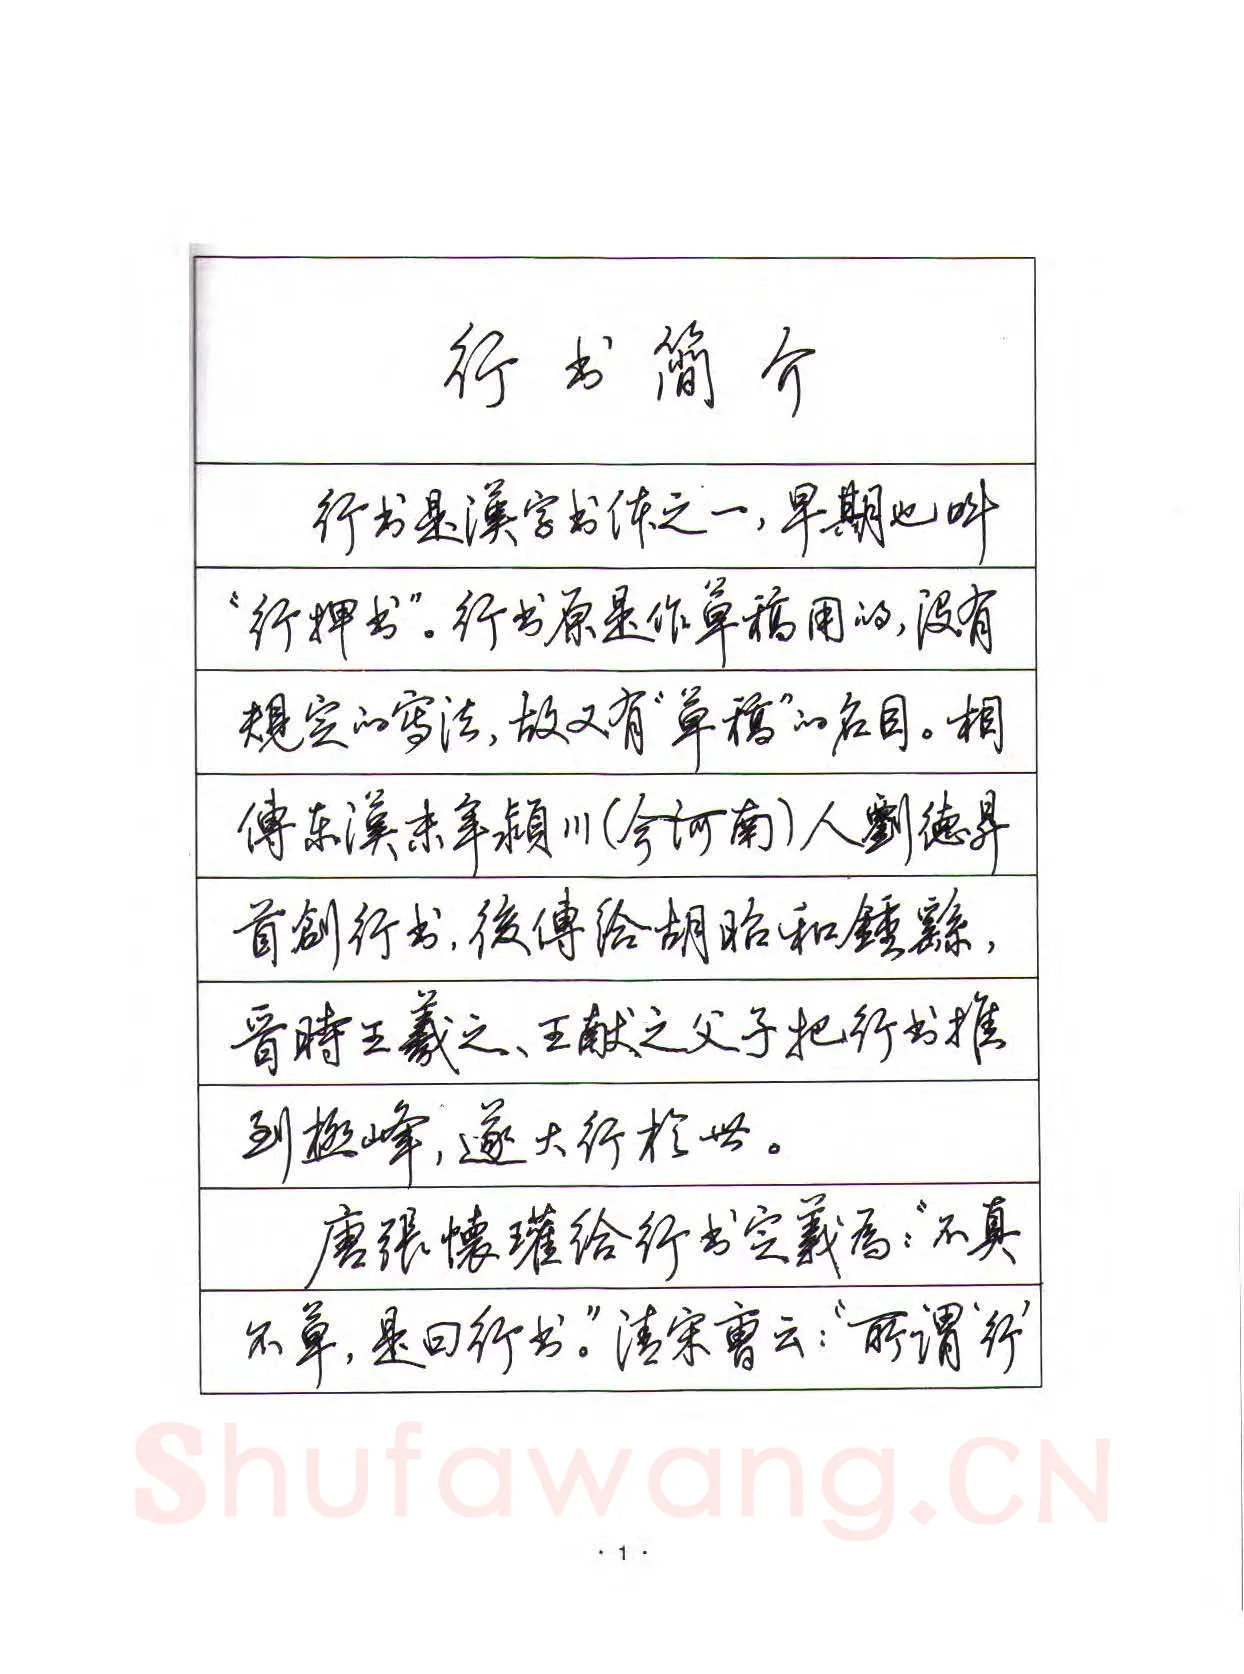 行书簡介
行书是漢字书体之一，早期也叫
“行押书”。行书原是作草稿用的，没有
規定的寫法，故又有“草稿”的名目。相
傳东漢末年潁川（今河南）人劉德昇
首創行书，後傳给胡昭和鍾繇，
晉時王羲之、王献之父子把行书推
到極峰，遂大行於世。
唐張懷瓘给行书定義為：“不真
不草，是曰行书。”清宋曹云：“所謂‘行’
Shufawang.CN
·1·